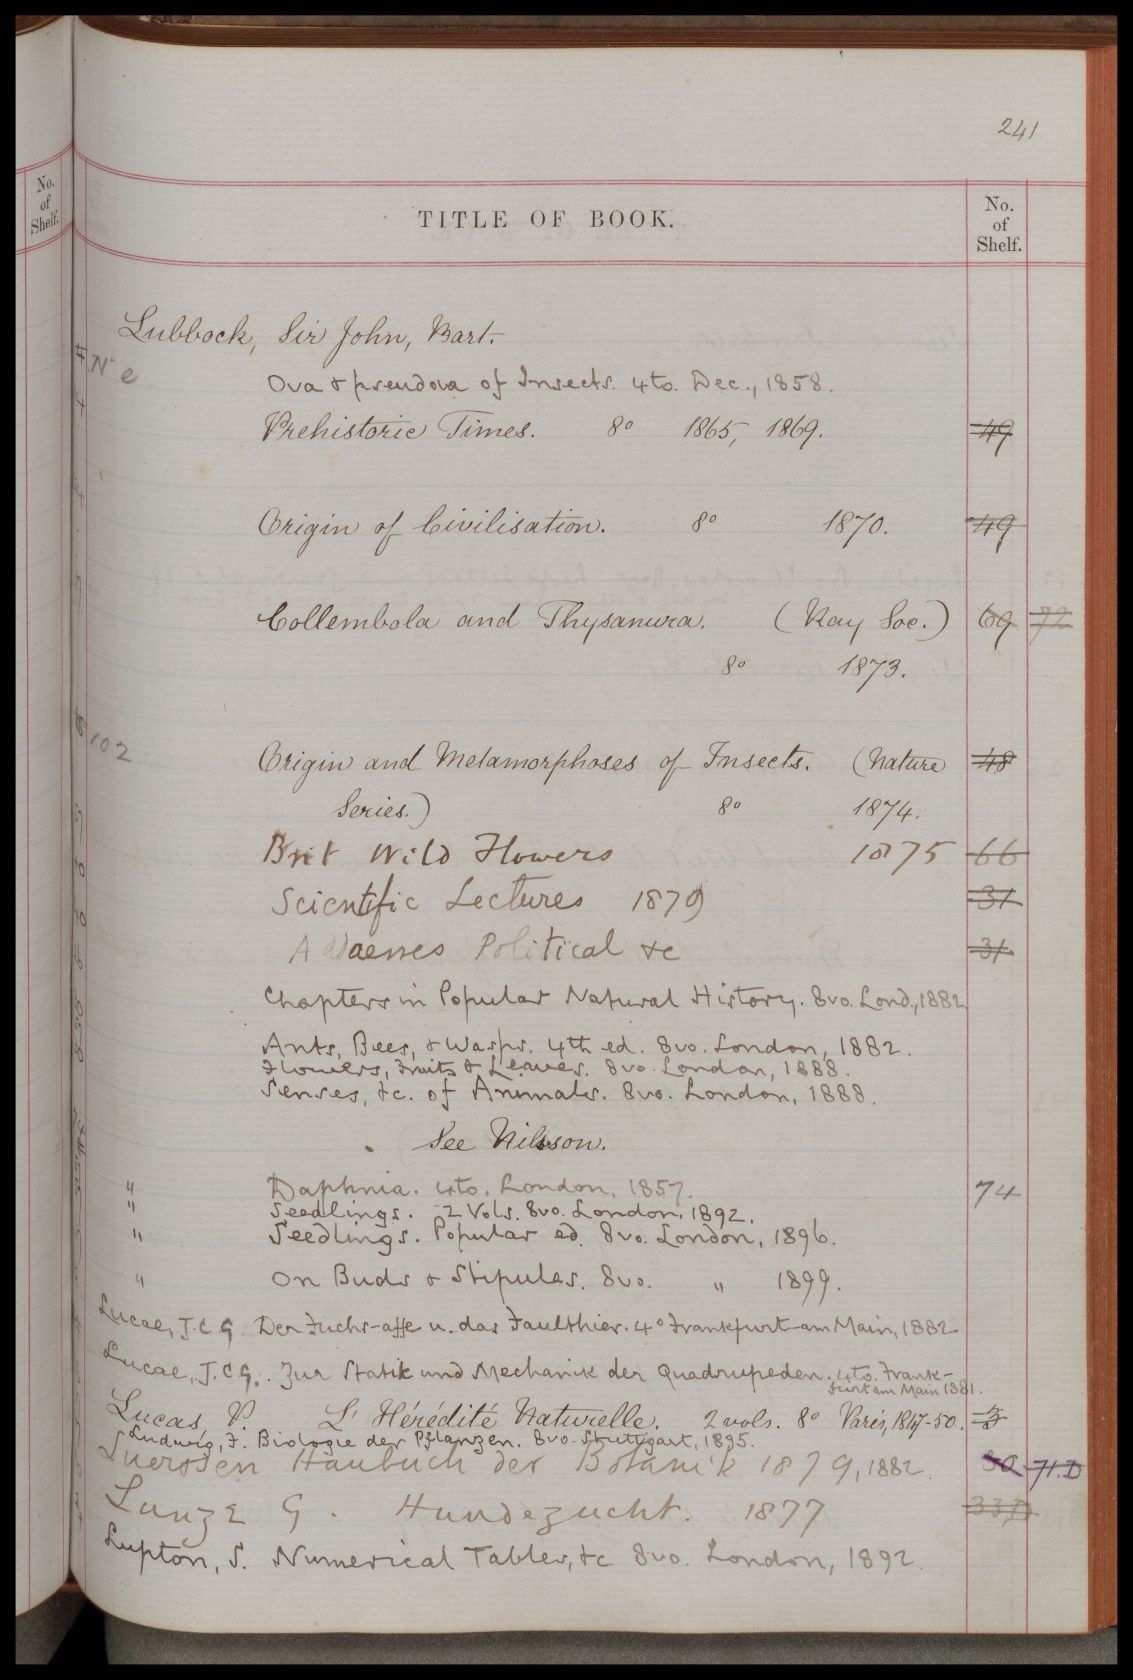 241
No.
of
Shelf.
TITLE OF BOOK.
No.
of
Shelf.
Lubbock, Sir John, Bart.
Ova & pseudova of Insects. 4to. Dec., 1858.
Prehistoric Times. 8º 1865, 1869. 49
Origin of Civilisation. 8º 1870. 49
Collembola and Thysanura. (Ray Soc.) 69 72
8º 1873.
102
Origin and Metamorphoses of Insects. (Nature 48
Series.) 8º 1874.
Brit Wild Flowers 1875 66
Scientific Lectures 1879 31
Political &c 31
Chapters in Popular Natural History. 8vo. Lond., 1882.
Ants, Bees, & Wasps. 4th ed. 8vo. London, 1882.
Flowers, Fruits & Leaves. 8vo. London, 1888.
Senses, &c. of Animals. 8vo. London, 1888.
See Nilsson.
" Daphnia. 4to. London, 1857. 74
" Seedlings. 2 Vols. 8vo. London, 1892.
" Seedlings. Popular ed. 8vo. London, 1896.
" On Buds & Stipules. 8vo. " 1899.
Lucae, J.C.G. Der Fuchs-affe u. das Faulthier. 4º Frankfurt-am Main, 1882
Lucae, J.C.G. Zur Statik und Mechanik der Quadrupeden. 4to. Frank-
furt am Main 1881.
Lucas, P. L'Hérédité Naturelle. 2 vols. 8º Paris, 1847-50. 3
Ludwig, F. Biologie der Pflanzen. 8vo. Stuttgart, 1895.
Luerssen Haubuch der Botanik 1879, 1882. 30 71.D
Lunze G. Hundezucht. 1877 33D
Lupton, S. Numerical Tables, &c 8vo. London, 1892.